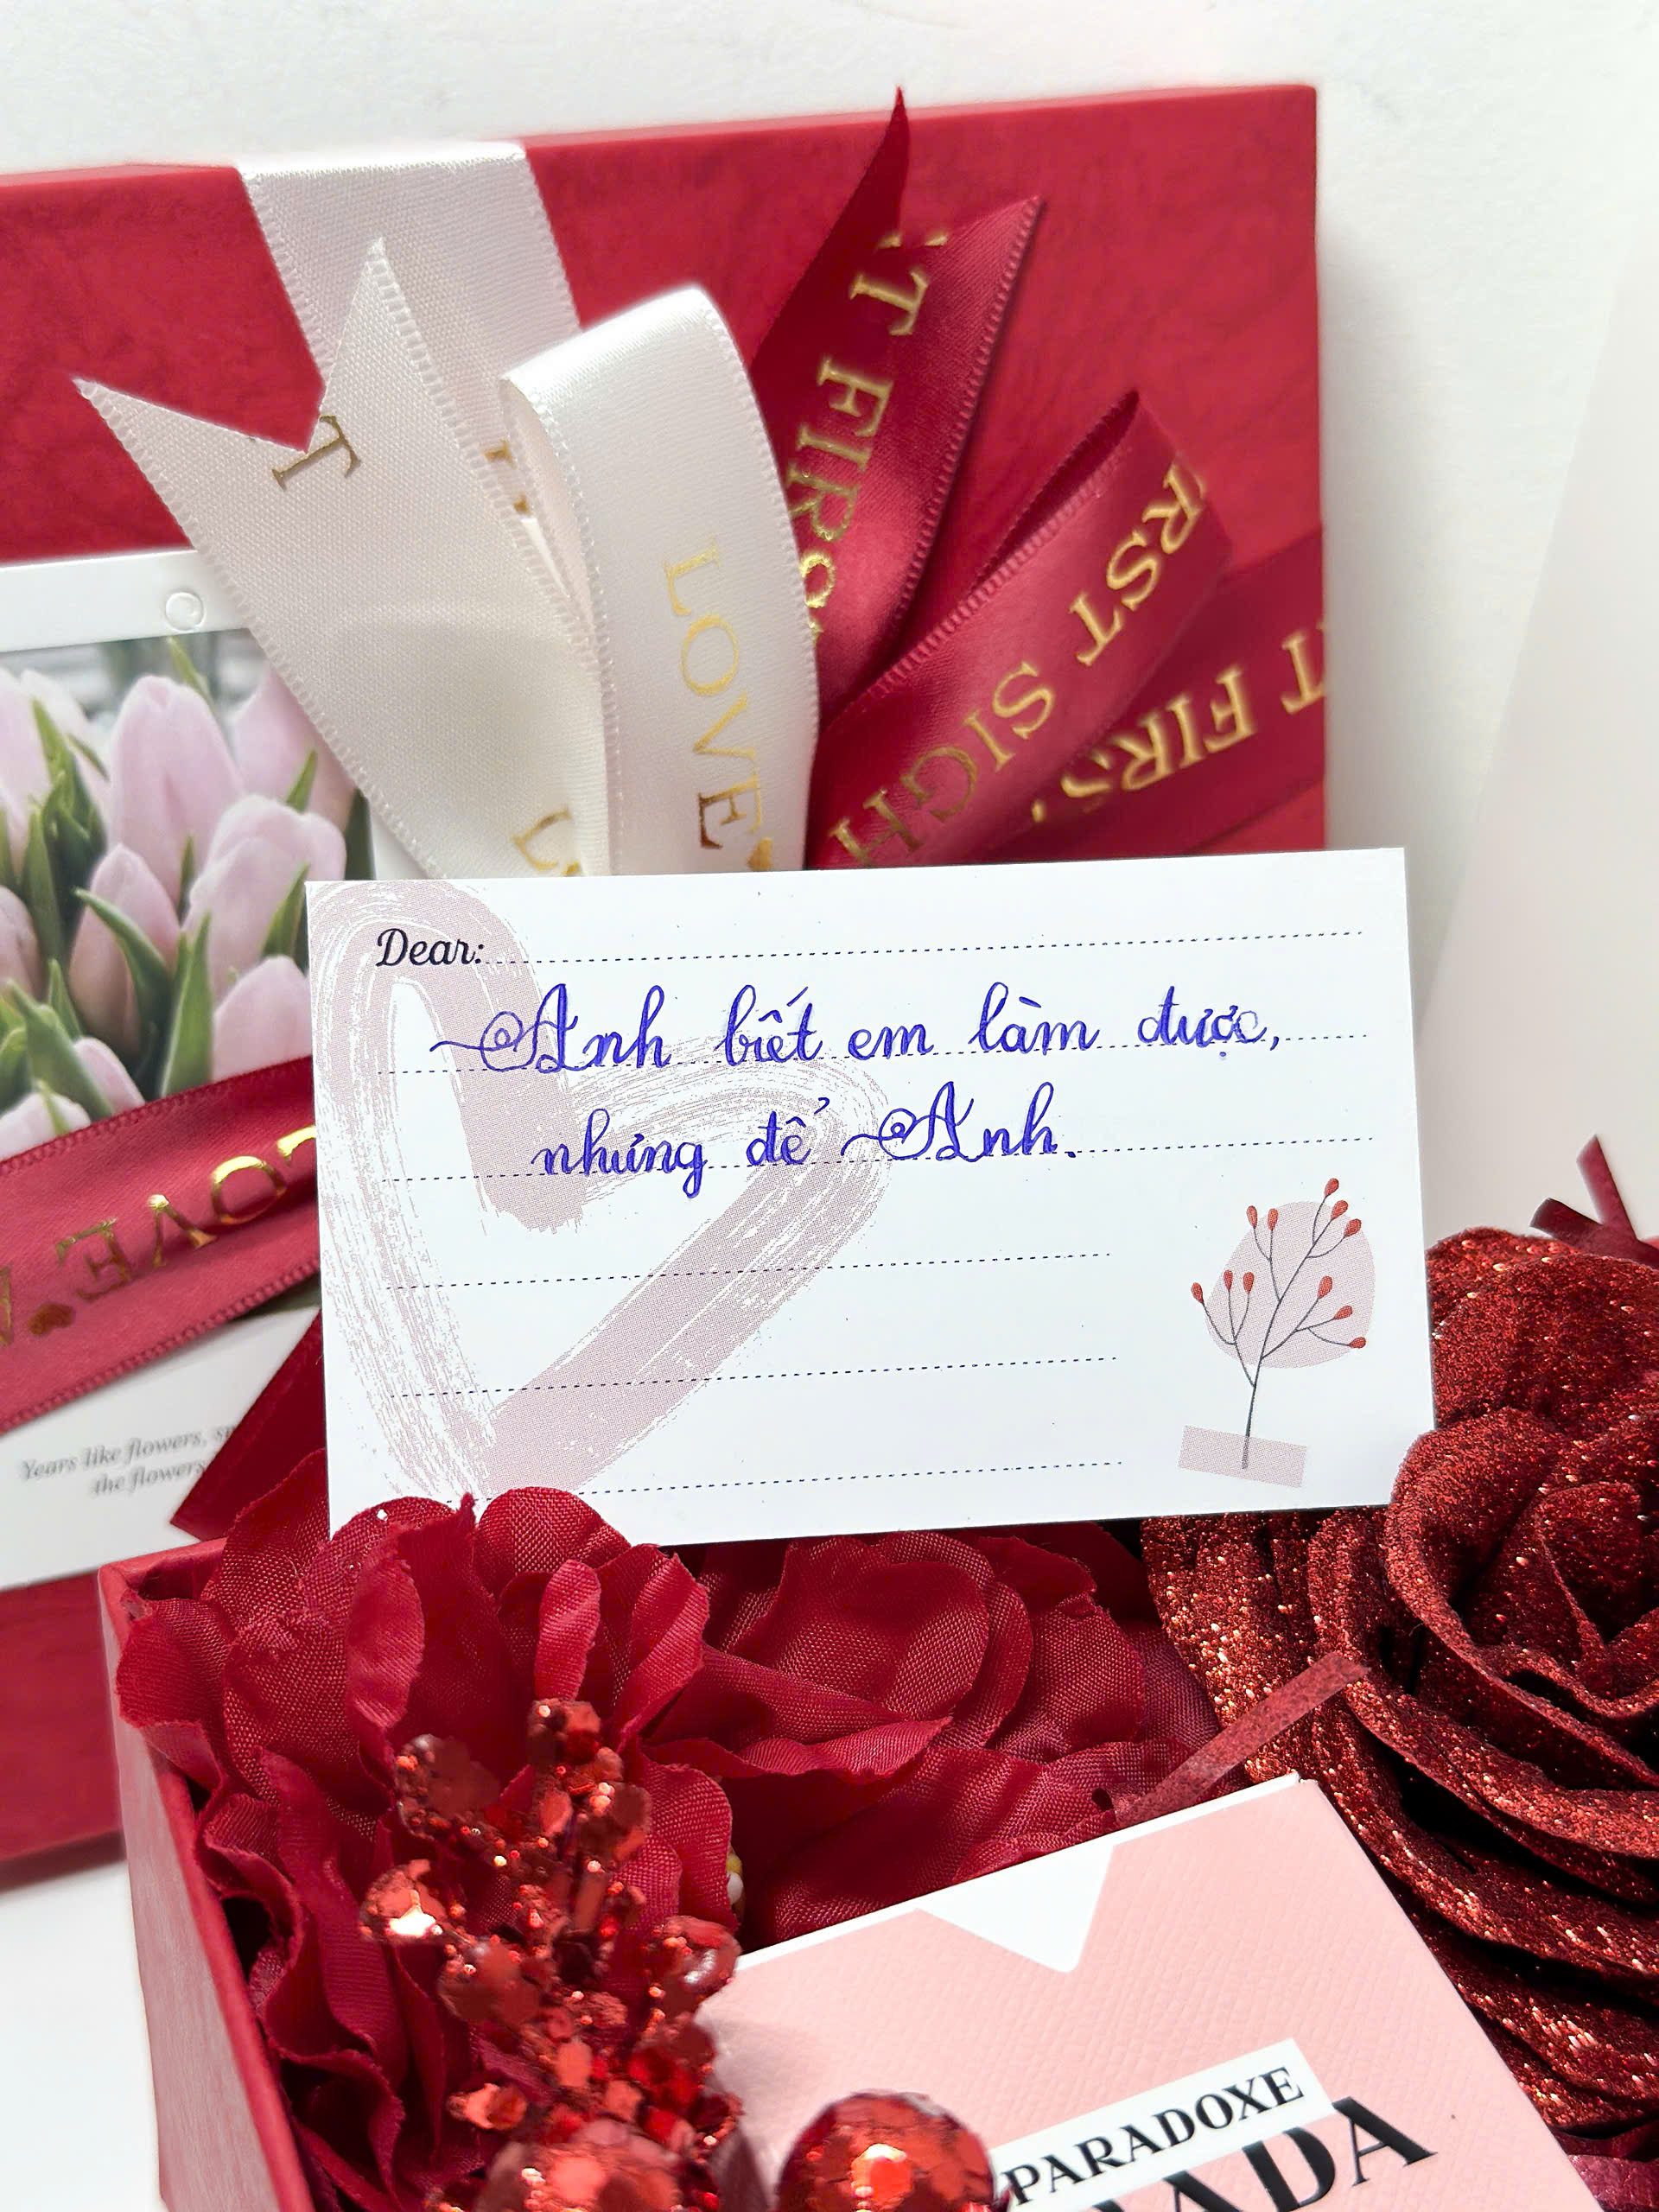 T
LOVE
T FIRS
RST SIGH
T FIRS
LOVE
Dear:
Anh biết em làm được,
nhưng để Anh.
Years like flowers, sp
the flowers
PARADOXE
ADA